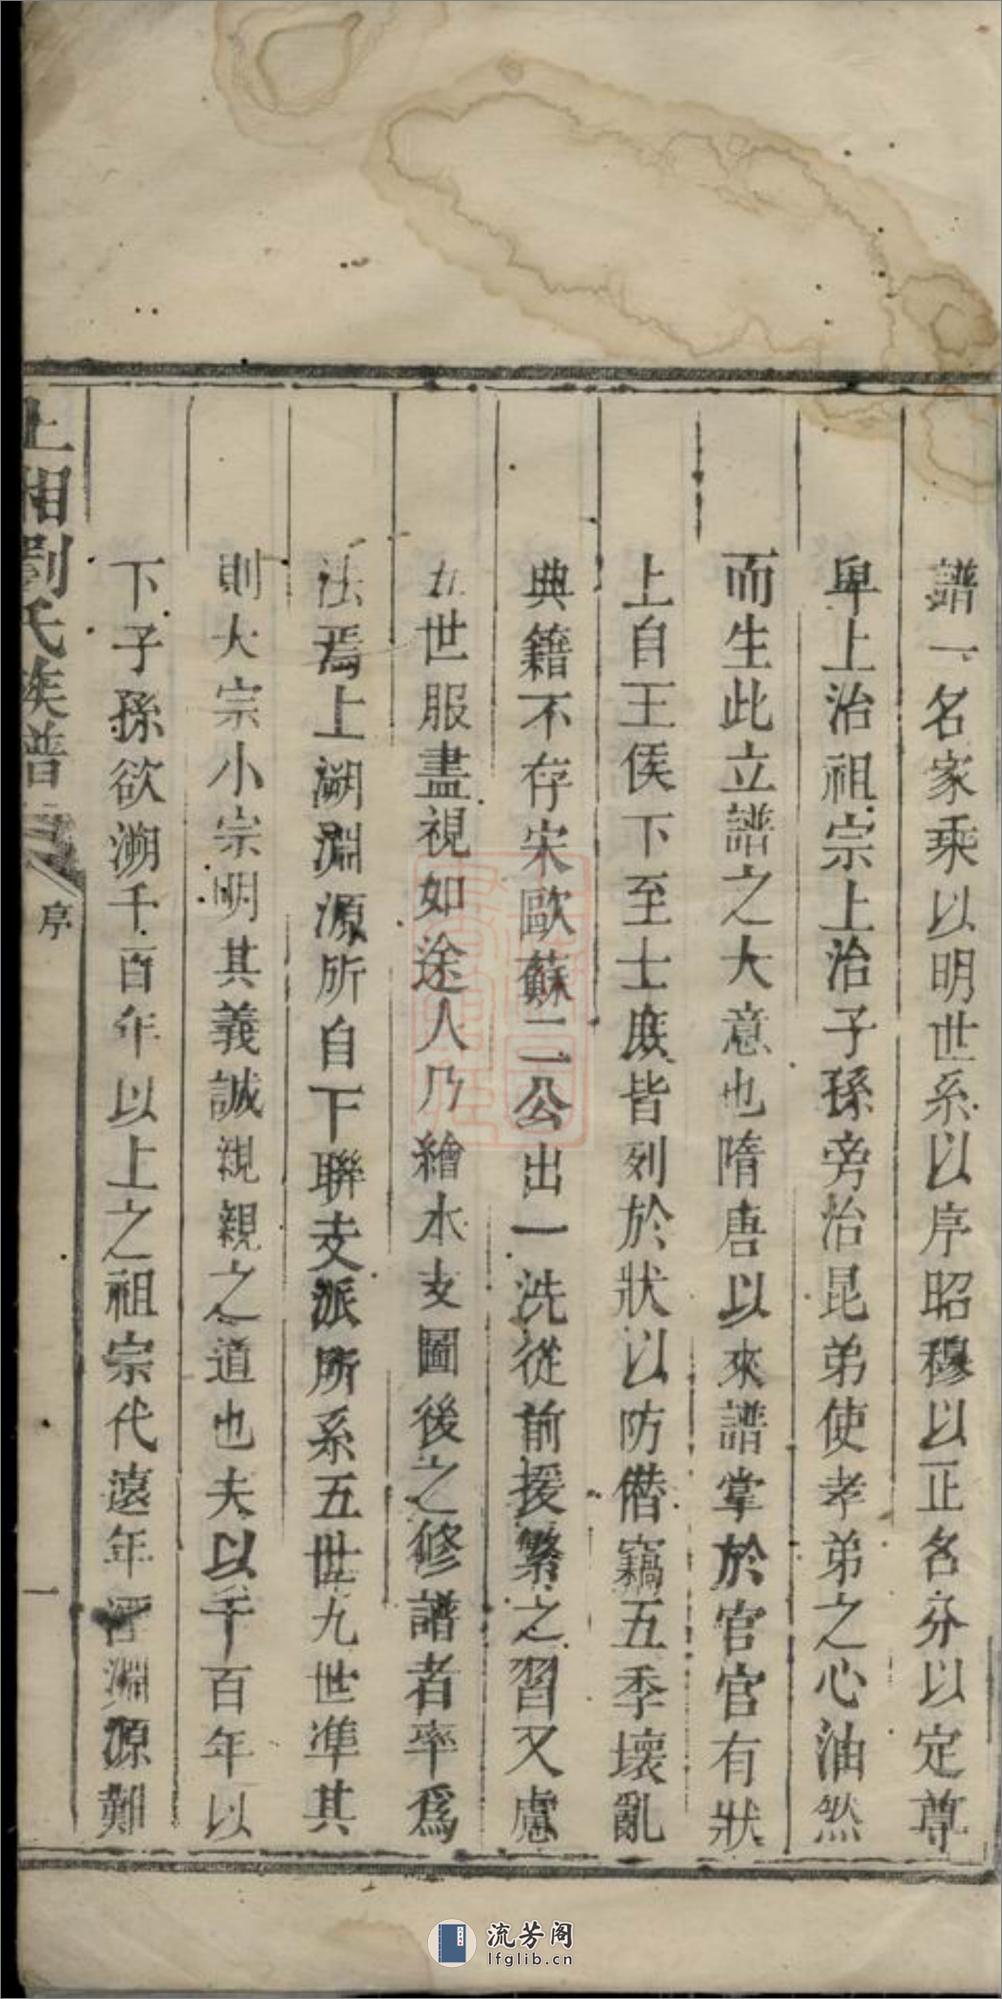 譜一名家乘以明世系以序昭穆以正名分以定尊
卑上治祖宗上治子孫旁治昆弟使孝弟之心油然
而生此立譜之大意也隋唐以來譜掌於官官有狀
上自王侯下至士庶皆列於狀以防僭竊五季壞亂
典籍不存宋歐蘇二公出一洗從前援繁之習又慮
五世服盡視如途人乃繪水支圖後之修譜者率爲
法焉上溯淵源所自下聯支派所系五世九世準其
則大宗小宗明其義誠親親之道也夫以千百年以
下子孫欲溯千百年以上之祖宗代遠年淵源難
上湘劉氏族譜
序
一
流芳阁
lfglib.cn